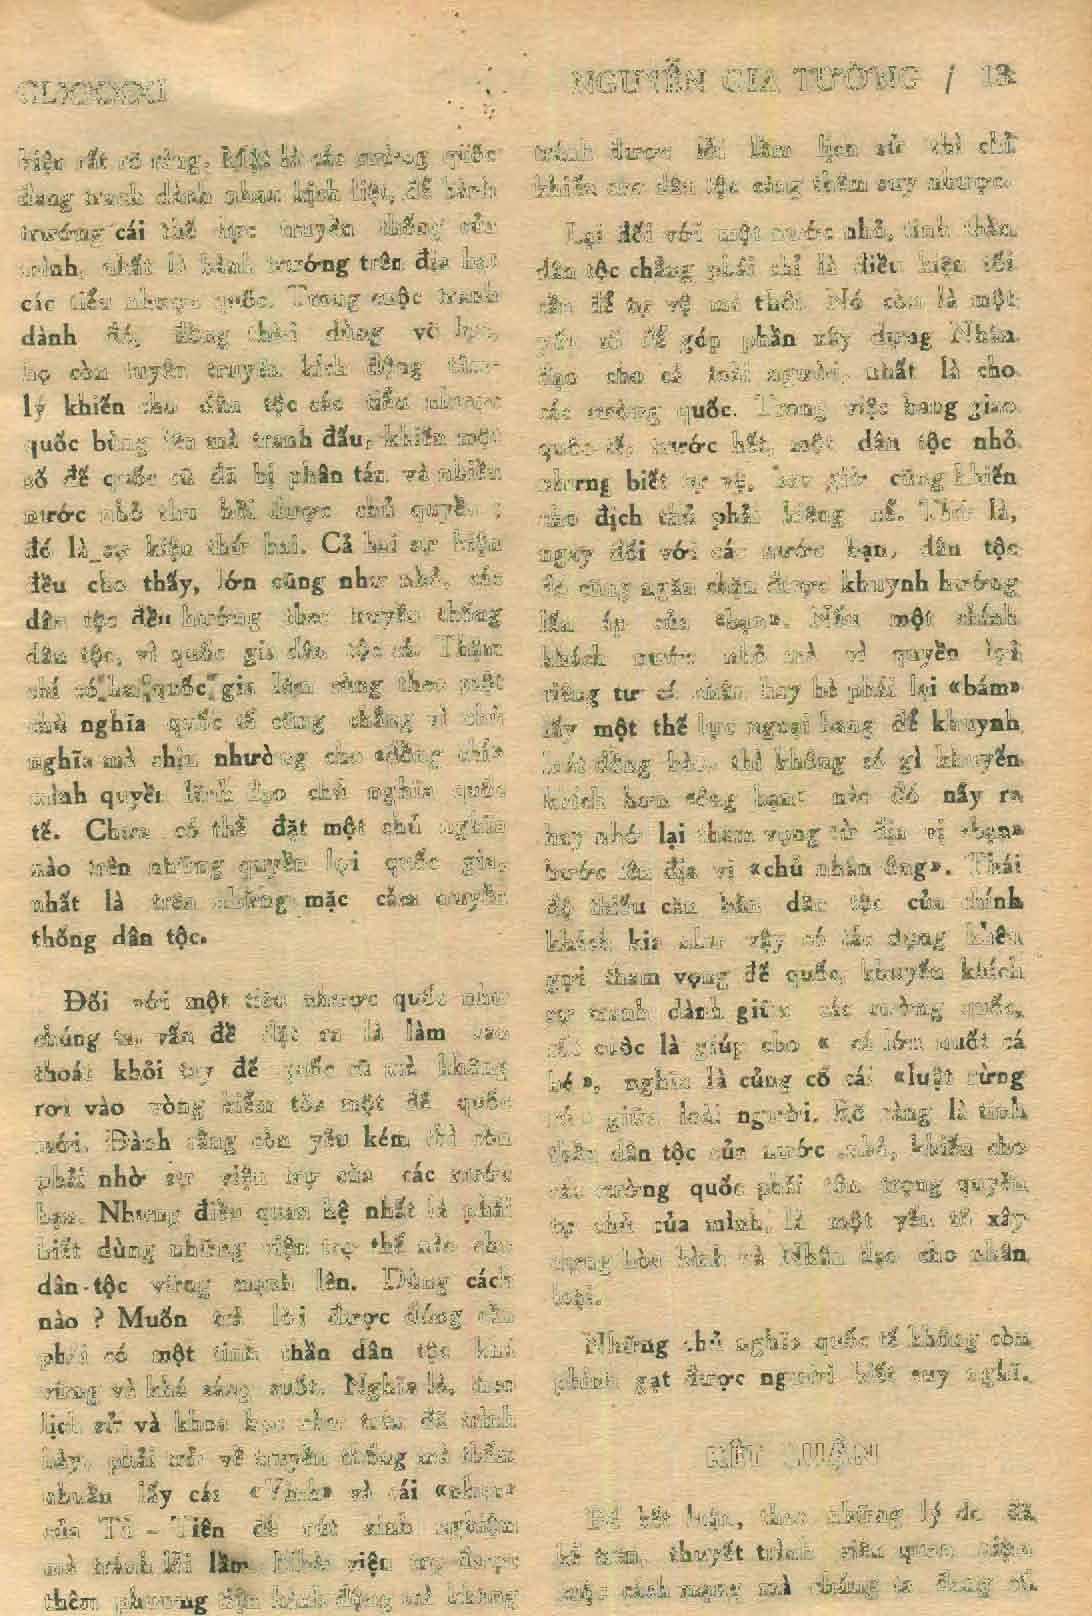 CLXXXXI
NGUYỄN GIA TƯỜNG / 13
kiện rất rõ ràng. Một là các cường quốc
đang tranh dành nhau kịch liệt, để bành
trướng cái thế lực truyền thống của
mình, nhất là bành trướng trên địa hạt
các tiểu nhược quốc. Trong cuộc tranh
dành đó, đồng thời dùng võ lực,
họ còn tuyên truyền kích động tâm-
lý khiến cho dân tộc các tiểu nhược
quốc bùng lên mà tranh đấu, khiến một
số đế quốc cũ đã bị phân tán và nhiều
nước nhỏ thu hồi được chủ quyền ;
đó là sự kiện thứ hai. Cả hai sự kiện
đều cho thấy, lớn cũng như nhỏ, các
dân tộc đều hướng theo truyền thống
dân tộc, vì quốc gia dân tộc cả. Thậm
chí có hai quốc gia làm cùng theo một
chủ nghĩa quốc tế cũng chẳng vì chủ
nghĩa mà chịu nhường cho «đồng chí»
mình quyền lãnh đạo chủ nghĩa quốc
tế. Chưa có thể đặt một chủ nghĩa
nào trên những quyền lợi quốc gia,
nhất là trên những mặc cảm truyền
thống dân tộc.
Đối với một tiểu nhược quốc như
chúng ta, vấn đề đặt ra là làm sao
thoát khỏi tay đế quốc cũ mà không
rơi vào vòng kiềm tỏa một đế quốc
mới. Đành rằng còn yếu kém thì còn
phải nhờ sự viện trợ của các nước
bạn. Nhưng điều quan hệ nhất là phải
biết dùng những viện trợ thế nào cho
dân-tộc vững mạnh lên. Dùng cách
nào ? Muốn trả lời được đúng cần
phải có một tinh thần dân tộc khá
vững và khá sáng suốt. Nghĩa là, theo
lịch sử và khoa học như trên đã trình
bày, phải trở về truyền thống mà thấm
nhuần lấy cái «Vinh» và cái «nhục»
của Tổ - Tiên để rút kinh nghiệm
mà tránh lỗi lầm. Nhờ viện trợ được
thêm phương tiện hành động mà không
tránh được lỗi lầm lịch sử thì chỉ
khiến cho dân tộc càng thêm suy nhược.
Lại đối với một nước nhỏ, tinh thần
dân tộc chẳng phải chỉ là điều kiện tối
cần để tự vệ mà thôi. Nó còn là một
yếu tố để góp phần xây dựng Nhân
đạo cho cả loài người, nhất là cho
các cường quốc. Trong việc bang giao
quốc-tế, trước hết, một dân tộc nhỏ
nhưng biết tự vệ, bao giờ cũng khiến
cho địch thủ phải kiêng nể. Thứ là,
ngay đối với các nước bạn, dân tộc
đó cũng ngăn chặn được khuynh hướng
lấn áp của «bạn». Nếu một chính
khách nước nhỏ mà vì quyền lợi
riêng tư cá nhân hay bè phái lại «bám»
lấy một thế lực ngoại bang để khuynh
loát đồng bào, thì không có gì khuyến
khích hơn «ông bạn» nào đó nẩy ra
hay nhớ lại tham vọng từ địa vị «bạn»
bước lên địa vị «chủ nhân ông». Thái
độ thiếu căn bản dân tộc của chính
khách kia như vậy có tác dụng khêu
gợi tham vọng đế quốc, khuyến khích
sự tranh dành giữa các cường quốc,
rốt cuộc là giúp cho « cá lớn nuốt cá
bé », nghĩa là củng cố cái «luật rừng
rú» giữa loài người. Rõ ràng là tinh
thần dân tộc của nước nhỏ, khiến cho
các cường quốc phải tôn trọng quyền
tự chủ của mình, là một yếu tố xây
dựng hòa bình và Nhân đạo cho nhân
loại.
Những chủ nghĩa quốc tế không còn
phỉnh gạt được người biết suy nghĩ.
KẾT LUẬN
Để kết luận, theo những lý do đã
kể trên, thuyết trình viên quan niệm
cuộc cách mạng mà chúng ta đang có,